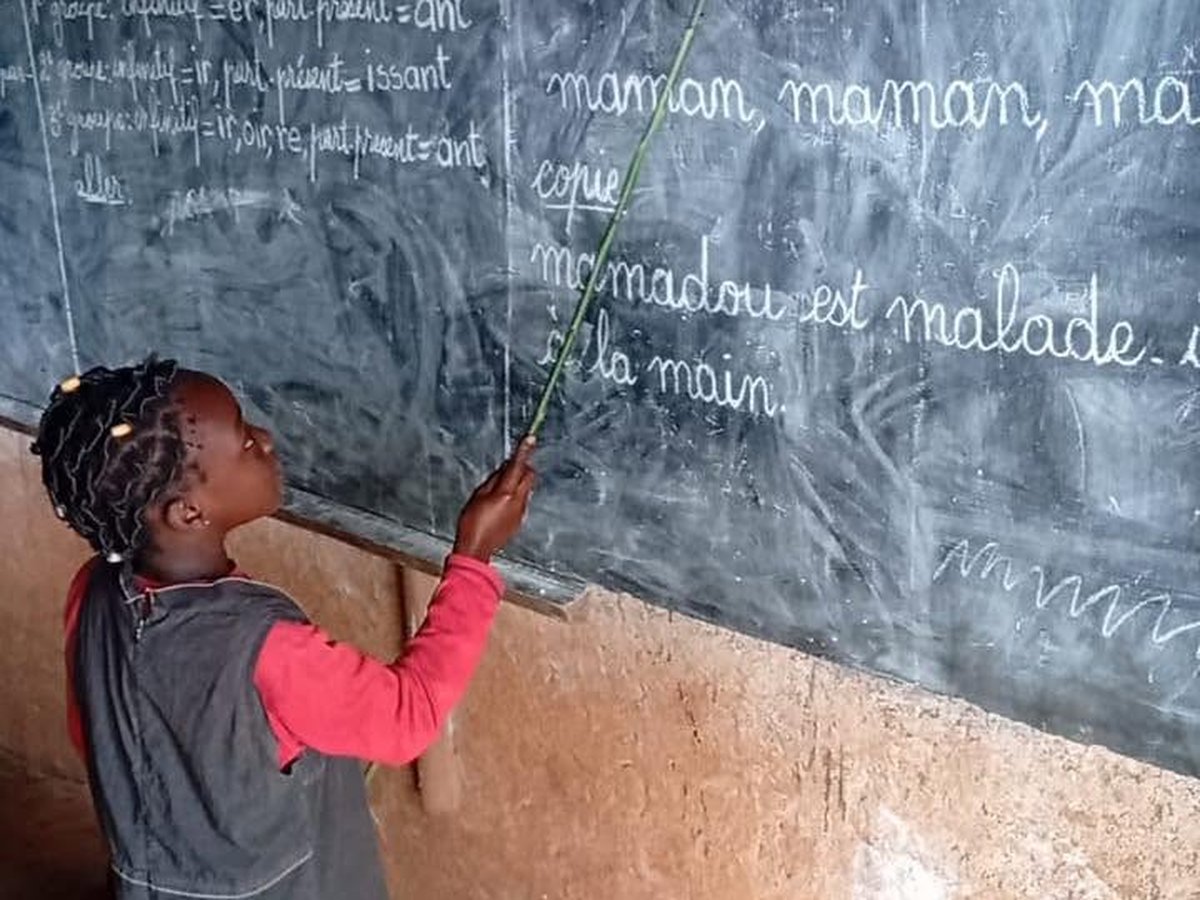 1er groupe: infinitif = er, part. présent = ant
2e groupe: infinitif = ir, part. présent = issant
3e groupe: infinitif = ir, oir, re, part. present = ant
aller
maman, maman, ma
copie
mamadou est malade.
à la main.